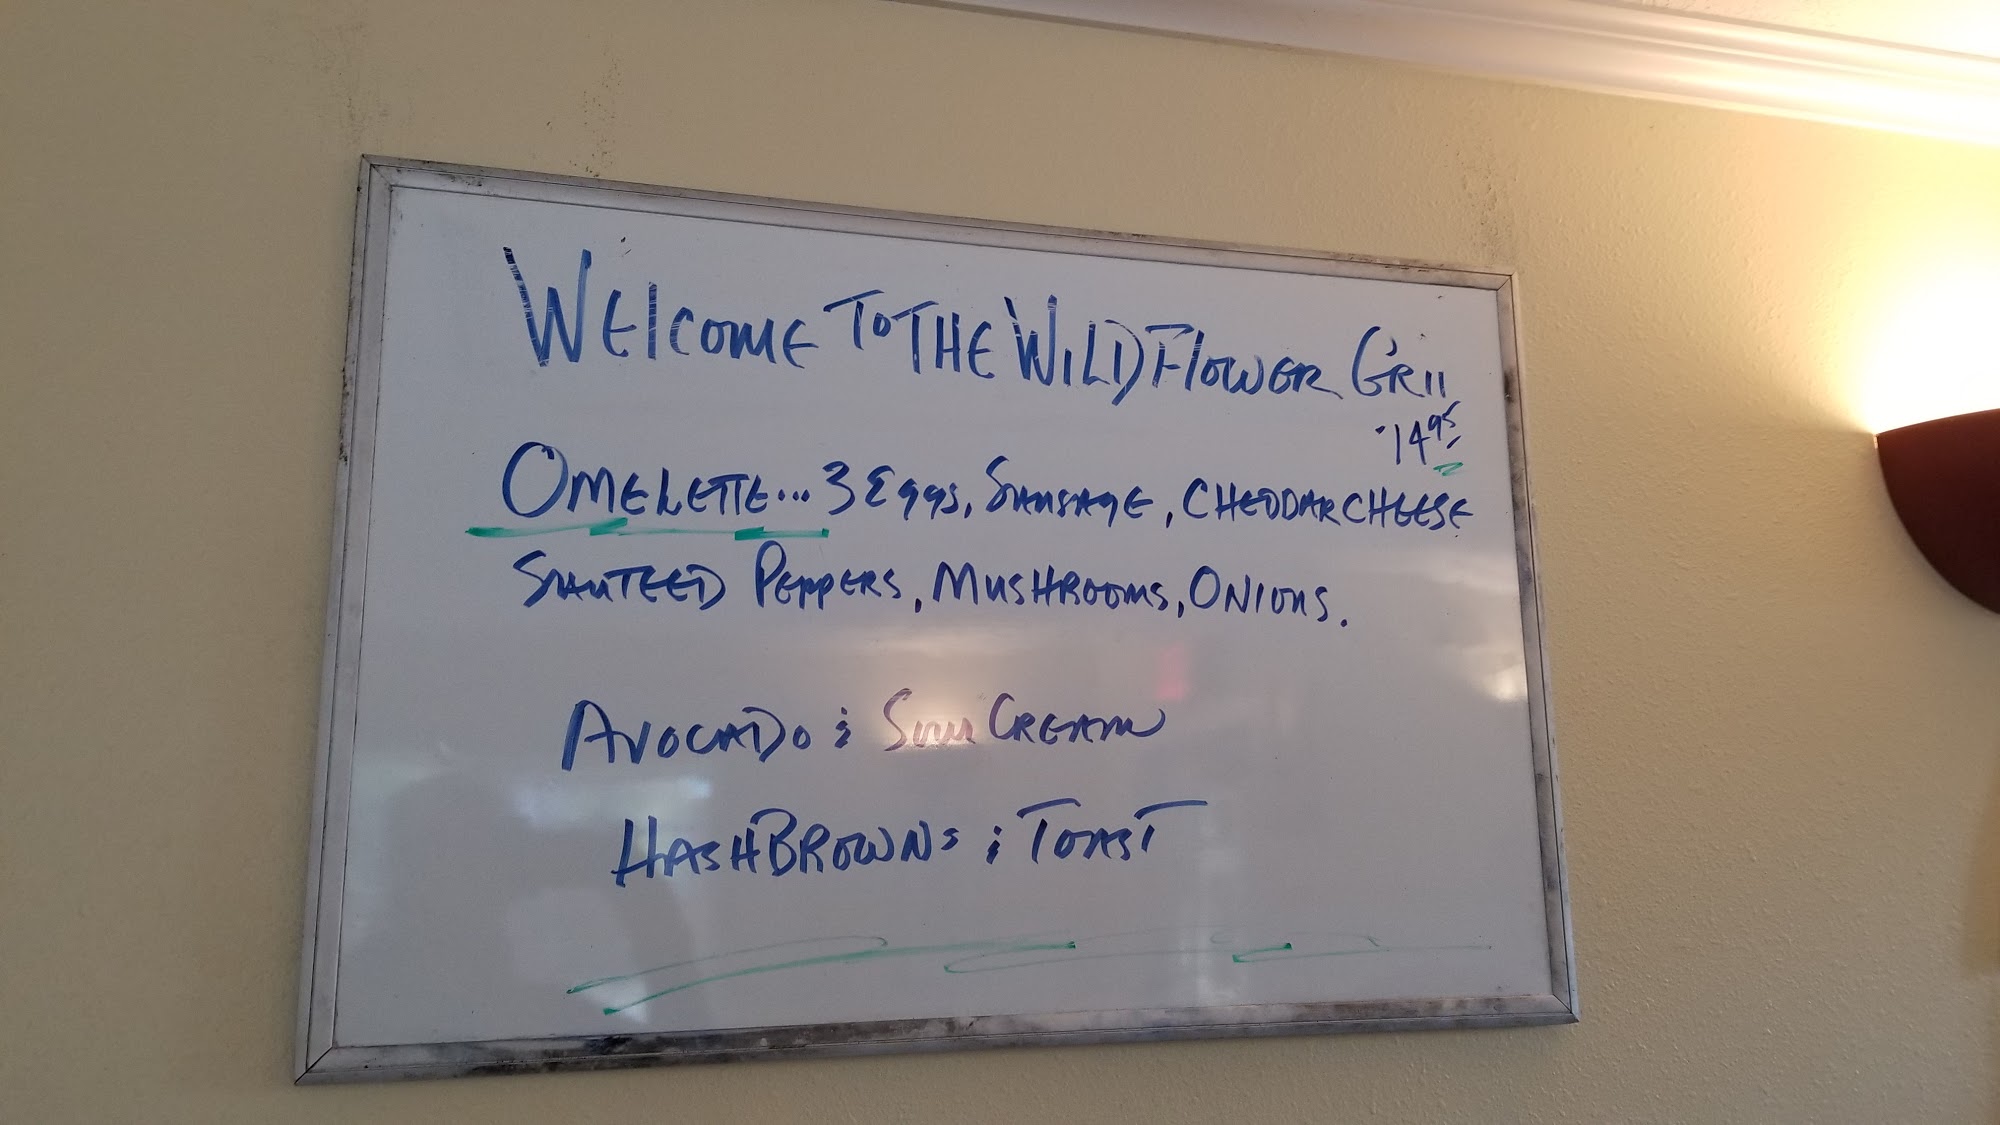 WELCOME TO THE WILDFLOWER GRILL
14.95
OMELETTE... 3 EGGS, SAUSAGE, CHEDDAR CHEESE
SAUTEED PEPPERS, MUSHROOMS, ONIONS.
AVOCADO & SOUR CREAM
HASHBROWNS & TOAST